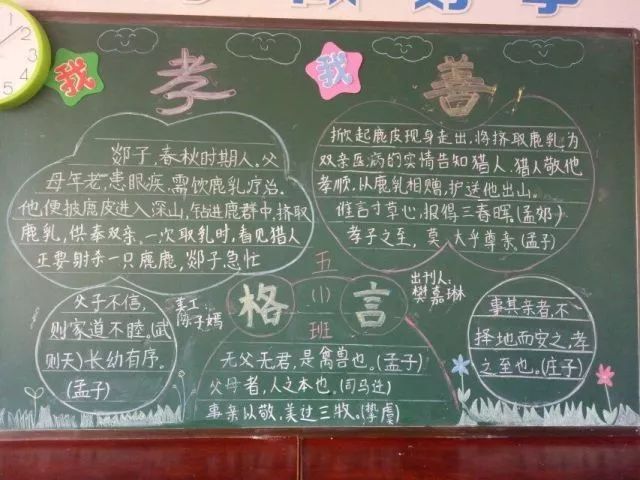 我 孝 我 善
郯子,春秋时期人,父
母年老,患眼疾,需饮鹿乳疗治。
他便披鹿皮进入深山,钻进鹿群中,挤取
鹿乳,供奉双亲,一次取乳时,看见猎人
正要射杀一只鹿鹿,郯子急忙
掀起鹿皮现身走出,将挤取鹿乳为
双亲医病的实情告知猎人.猎人敬他
孝顺,从鹿乳相赠,护送他出山。
谁言寸草心,报得三春晖。(孟郊)
孝子之至,莫大乎尊亲。(孟子)
父子不信,
则家道不睦。(武
则天)长幼有序。
(孟子)
美工:
陈子嫣
五
(1)
班
格言
出刊人:
樊嘉琳
无父无君,是禽兽也。(孟子)
父母者,人之本也。(司马迁)
事亲以敬,美过三牧。(挚虞)
事其亲者,不
择地而安之,孝
之至也。(庄子)